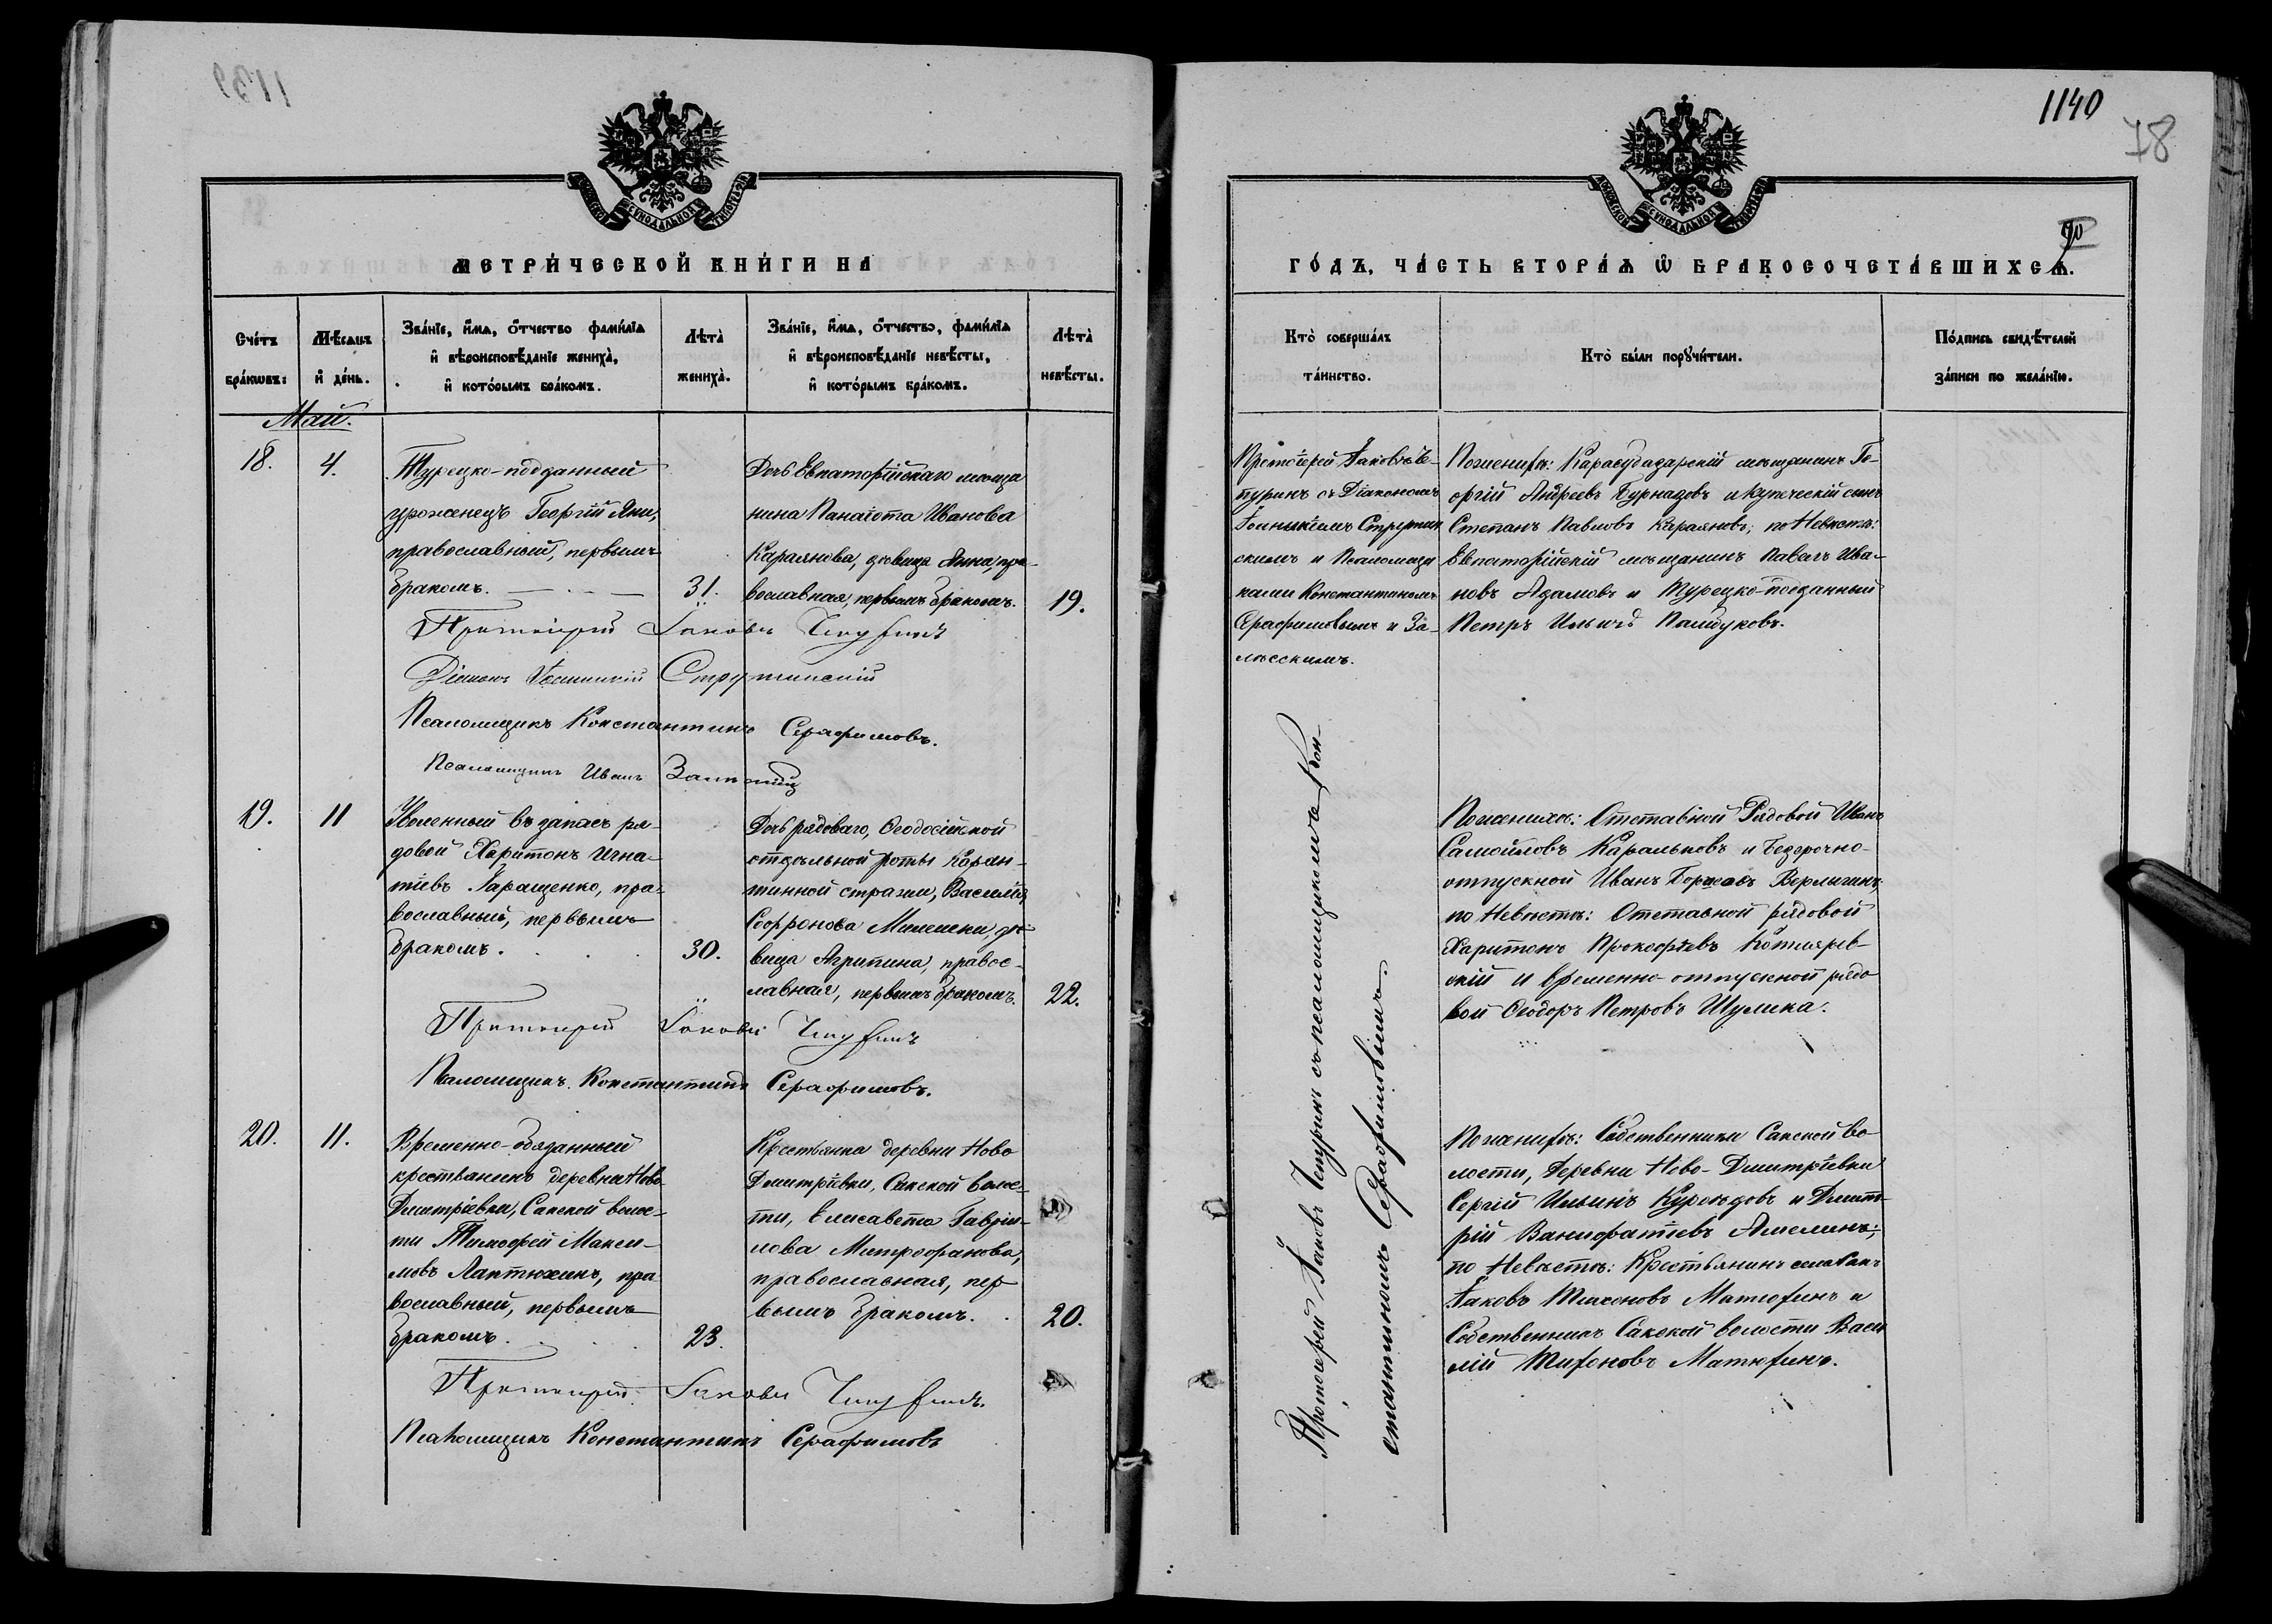 1139
МОСКОВСКОЙ СѴНОДАЛЬНОЙ ТИПОГРАФІИ
МЕТРИ́ЧЕСКОЙ КНИ́ГИ НА
Сче́тъ
бра́кѡвъ:
Мѣ́сяцъ
и҆ де́нь.
Зва́нїе, и҆́мѧ, ѻ҆́тчество фами́лїѧ
и҆ вѣроисповѣ́данїе жениха̀,
и҆ кото́рымъ бра́комъ.
Лѣта̀
жениха̀.
Зва́нїе, и҆́мѧ, ѻ҆́тчество, фами́лїѧ
и҆ вѣроисповѣ́данїе невѣ́сты,
и҆ кото́рымъ бра́комъ.
Лѣта̀
невѣ́сты.
Май.
18.
4.
Турецко-подданный
уроженецъ Георгій Яни,
православный, первымъ
бракомъ.
31.
Дочь Евпаторійскаго мѣща
нина Панаіота Иванова
Караянова, дѣвица Анна, пра-
вославная, первымъ бракомъ.
19.
Протоіерей Іаковъ Чепуринъ
Діаконъ Іоанникій Струтинскій
Псаломщикъ Константинъ Серафимовъ.
Псаломщикъ Иванъ Залѣсскій
19.
11
Уволенный въ запасъ ря-
довой Харитонъ Игна-
тіевъ Паращенко, пра-
вославный, первымъ
бракомъ.
30.
Дочь рядоваго, Ѳеодосійской
отдѣльной роты Каран-
тинной стражи, Василія
Софронова, дѣ-
вица Агрипина, правос-
лавная, первымъ бракомъ.
22.
Протоіерей Іаковъ Чепуринъ
Псаломщикъ Константинъ Серафимовъ.
20.
11.
Временно-обязанный
крестьянинъ деревни Ново
Дмитріевки, Сакской волос-
ти Тимофей Макси-
мовъ Лаптюхинъ, пра-
вославный, первымъ
бракомъ.
23.
Крестьянка деревни Ново
Дмитріевки, Сакской волос-
ти, Елисавета Гаврiи-
лова Митрофанова,
православная, пер
вымъ бракомъ.
20.
Протоіерей Іаковъ Чепуринъ.
Псаломщикъ Константинъ Серафимовъ
1140
78
МОСКОВСКОЙ СѴНОДАЛЬНОЙ ТИПОГРАФІИ
ГО́ДЪ, ЧА́СТЬ ВТОРА́Ѧ Ѡ҆ БРАКОСОЧЕТА́ВШИХСѦ.
Кто̀ соверша́лъ
та́инство.
Кто̀ бы́ли порꙋчи́тели.
По́дпись свидѣ́телей
за́писи по жела́нїю.
Протоіерей Іаковъ Че-
пуринъ съ Діакономъ
Іоанникіемъ Струтин
скимъ и Псаломщи
ками Константиномъ
Серафимовымъ и За-
лѣсскимъ.
По женихѣ: Карасубазарскій мѣщанинъ Ге-
оргій Андреевъ Бурназовъ и купеческій сынъ
Степанъ Павловъ Караяновъ; по Невѣстѣ:
Евпаторійскій мѣщанинъ Павелъ Ива-
новъ Адамовъ и Турецко-подданный
Петръ Ильичъ Пайдуковъ.
Протоіерей Іаковъ Чепуринъ съ псаломщикомъ Кон-
стантиномъ Серафимовымъ.
По женихѣ: Отставной Рядовой Иванъ
Самойловъ Каральковъ и Безсрочно-
отпускной Иванъ Борисовъ Верлыгинъ,
по Невѣстѣ: Отставной рядовой
Харитонъ Прокофіевъ Котляров-
скій и временно-отпускной рядо
вой Ѳеодоръ Петровъ Шулика.
По женихѣ: Собственники Сакской во-
лости, Деревни Ново-Дмитріевки
Сергій Ильинъ Куроѣдовъ и Дмит-
рій Ванифатіевъ Амелинъ;
по Невѣстѣ: Крестьянинъ села Сакъ
Іаковъ Тихоновъ Матюхинъ и
Собственникъ Сакской волости Васи
лій Тихоновъ Матюхинъ.